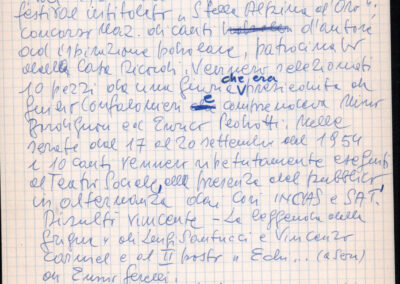 festival intitolato "Stella Alpina d'Oro",
concorso Naz. di canti d'autore
ad ispirazione popolare, patrocinato
dalla Casa Ricordi. Vennero selezionati
10 pezzi da una giuria che era presieduta da
Guido Confalonieri e comprendeva Nino
ed Enrico Pedrotti. Nelle
serate dal 17 al 20 settembre del 1954
i 10 canti vennero ripetutamente eseguiti
al Teatro Sociale, alla presenza del pubblico
in alternanza dai cori INCAS e SAT.
Risultò vincente - La leggenda della
Grigna - di Luigi Santucci e Vincenzo
Carniel e al II posto a (ason)
di